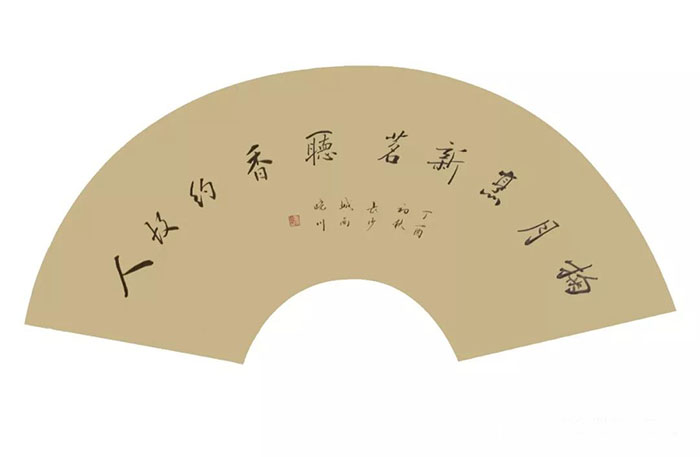 掬月烹新茗聽香約故人
丁酉
初秋
長沙
城南
曉川